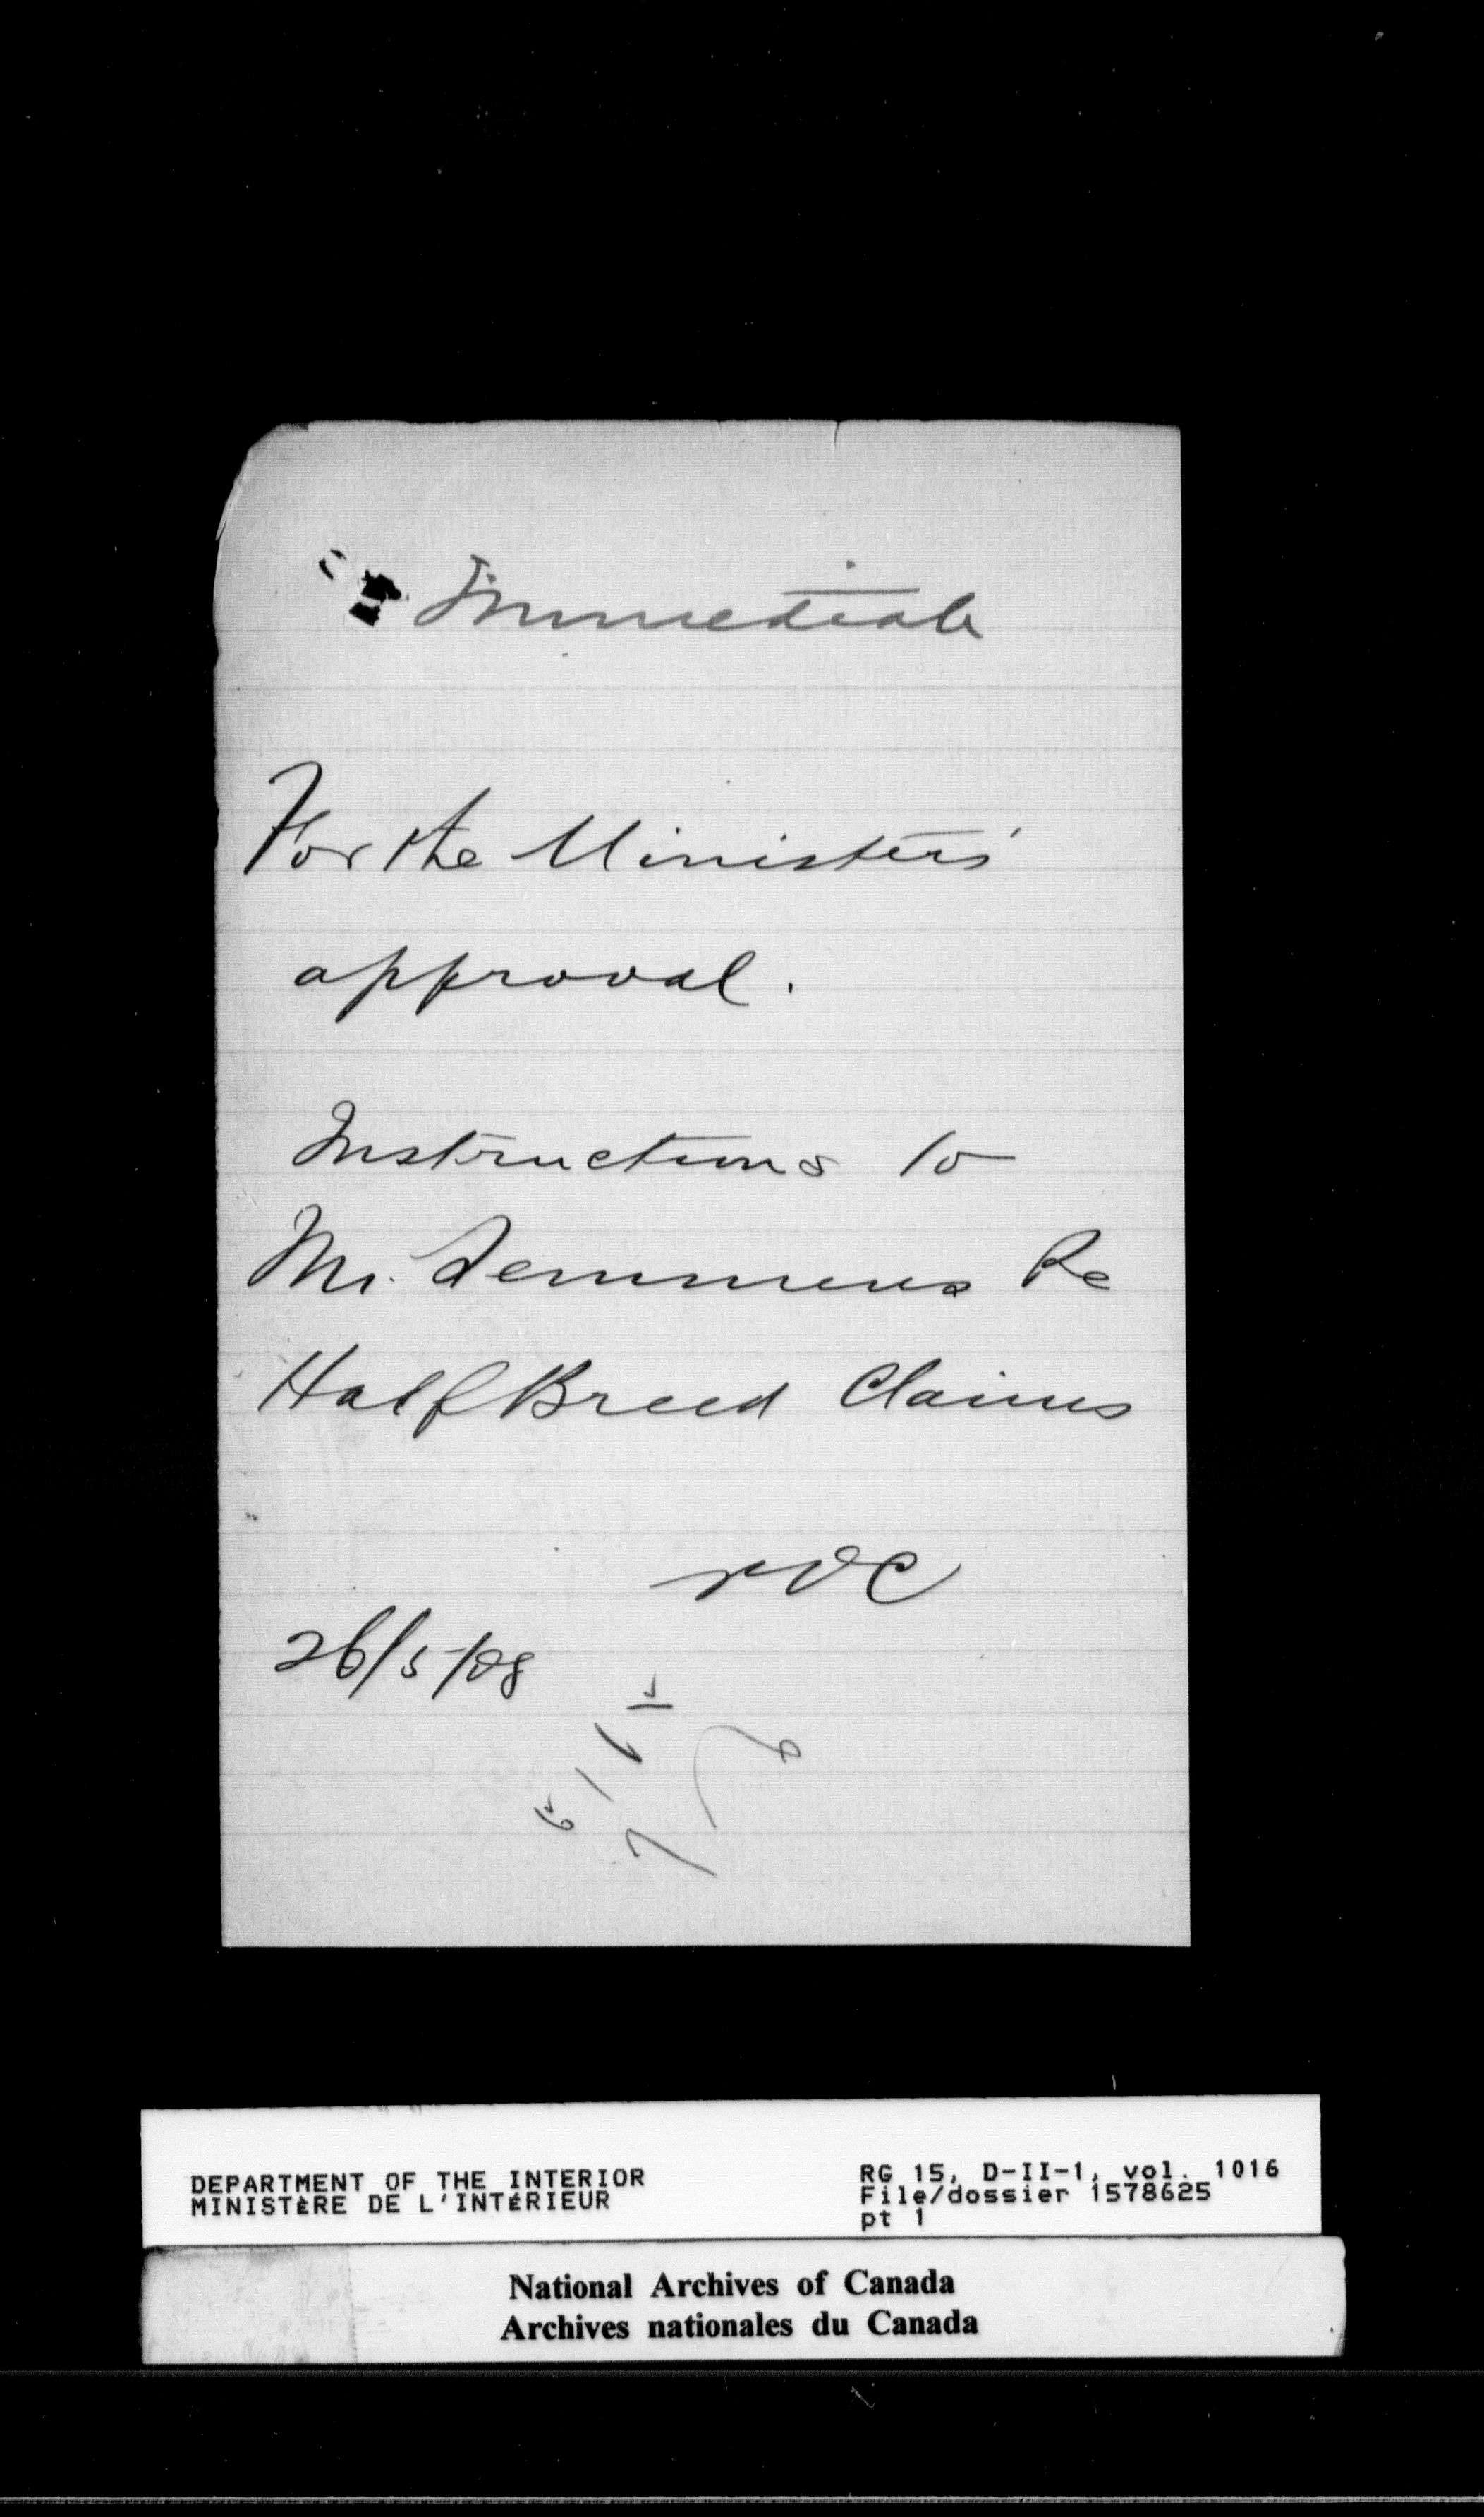 Immediate
For the Ministers'
approval.
Instructions to
Mr. Semmens Re
Half Breed Claims
26/5/08
DEPARTMENT OF THE INTERIOR
MINISTÈRE DE L'INTÉRIEUR
RG 15, D-II-1, vol. 1016
File/dossier 1578625
pt 1
National Archives of Canada
Archives nationales du Canada